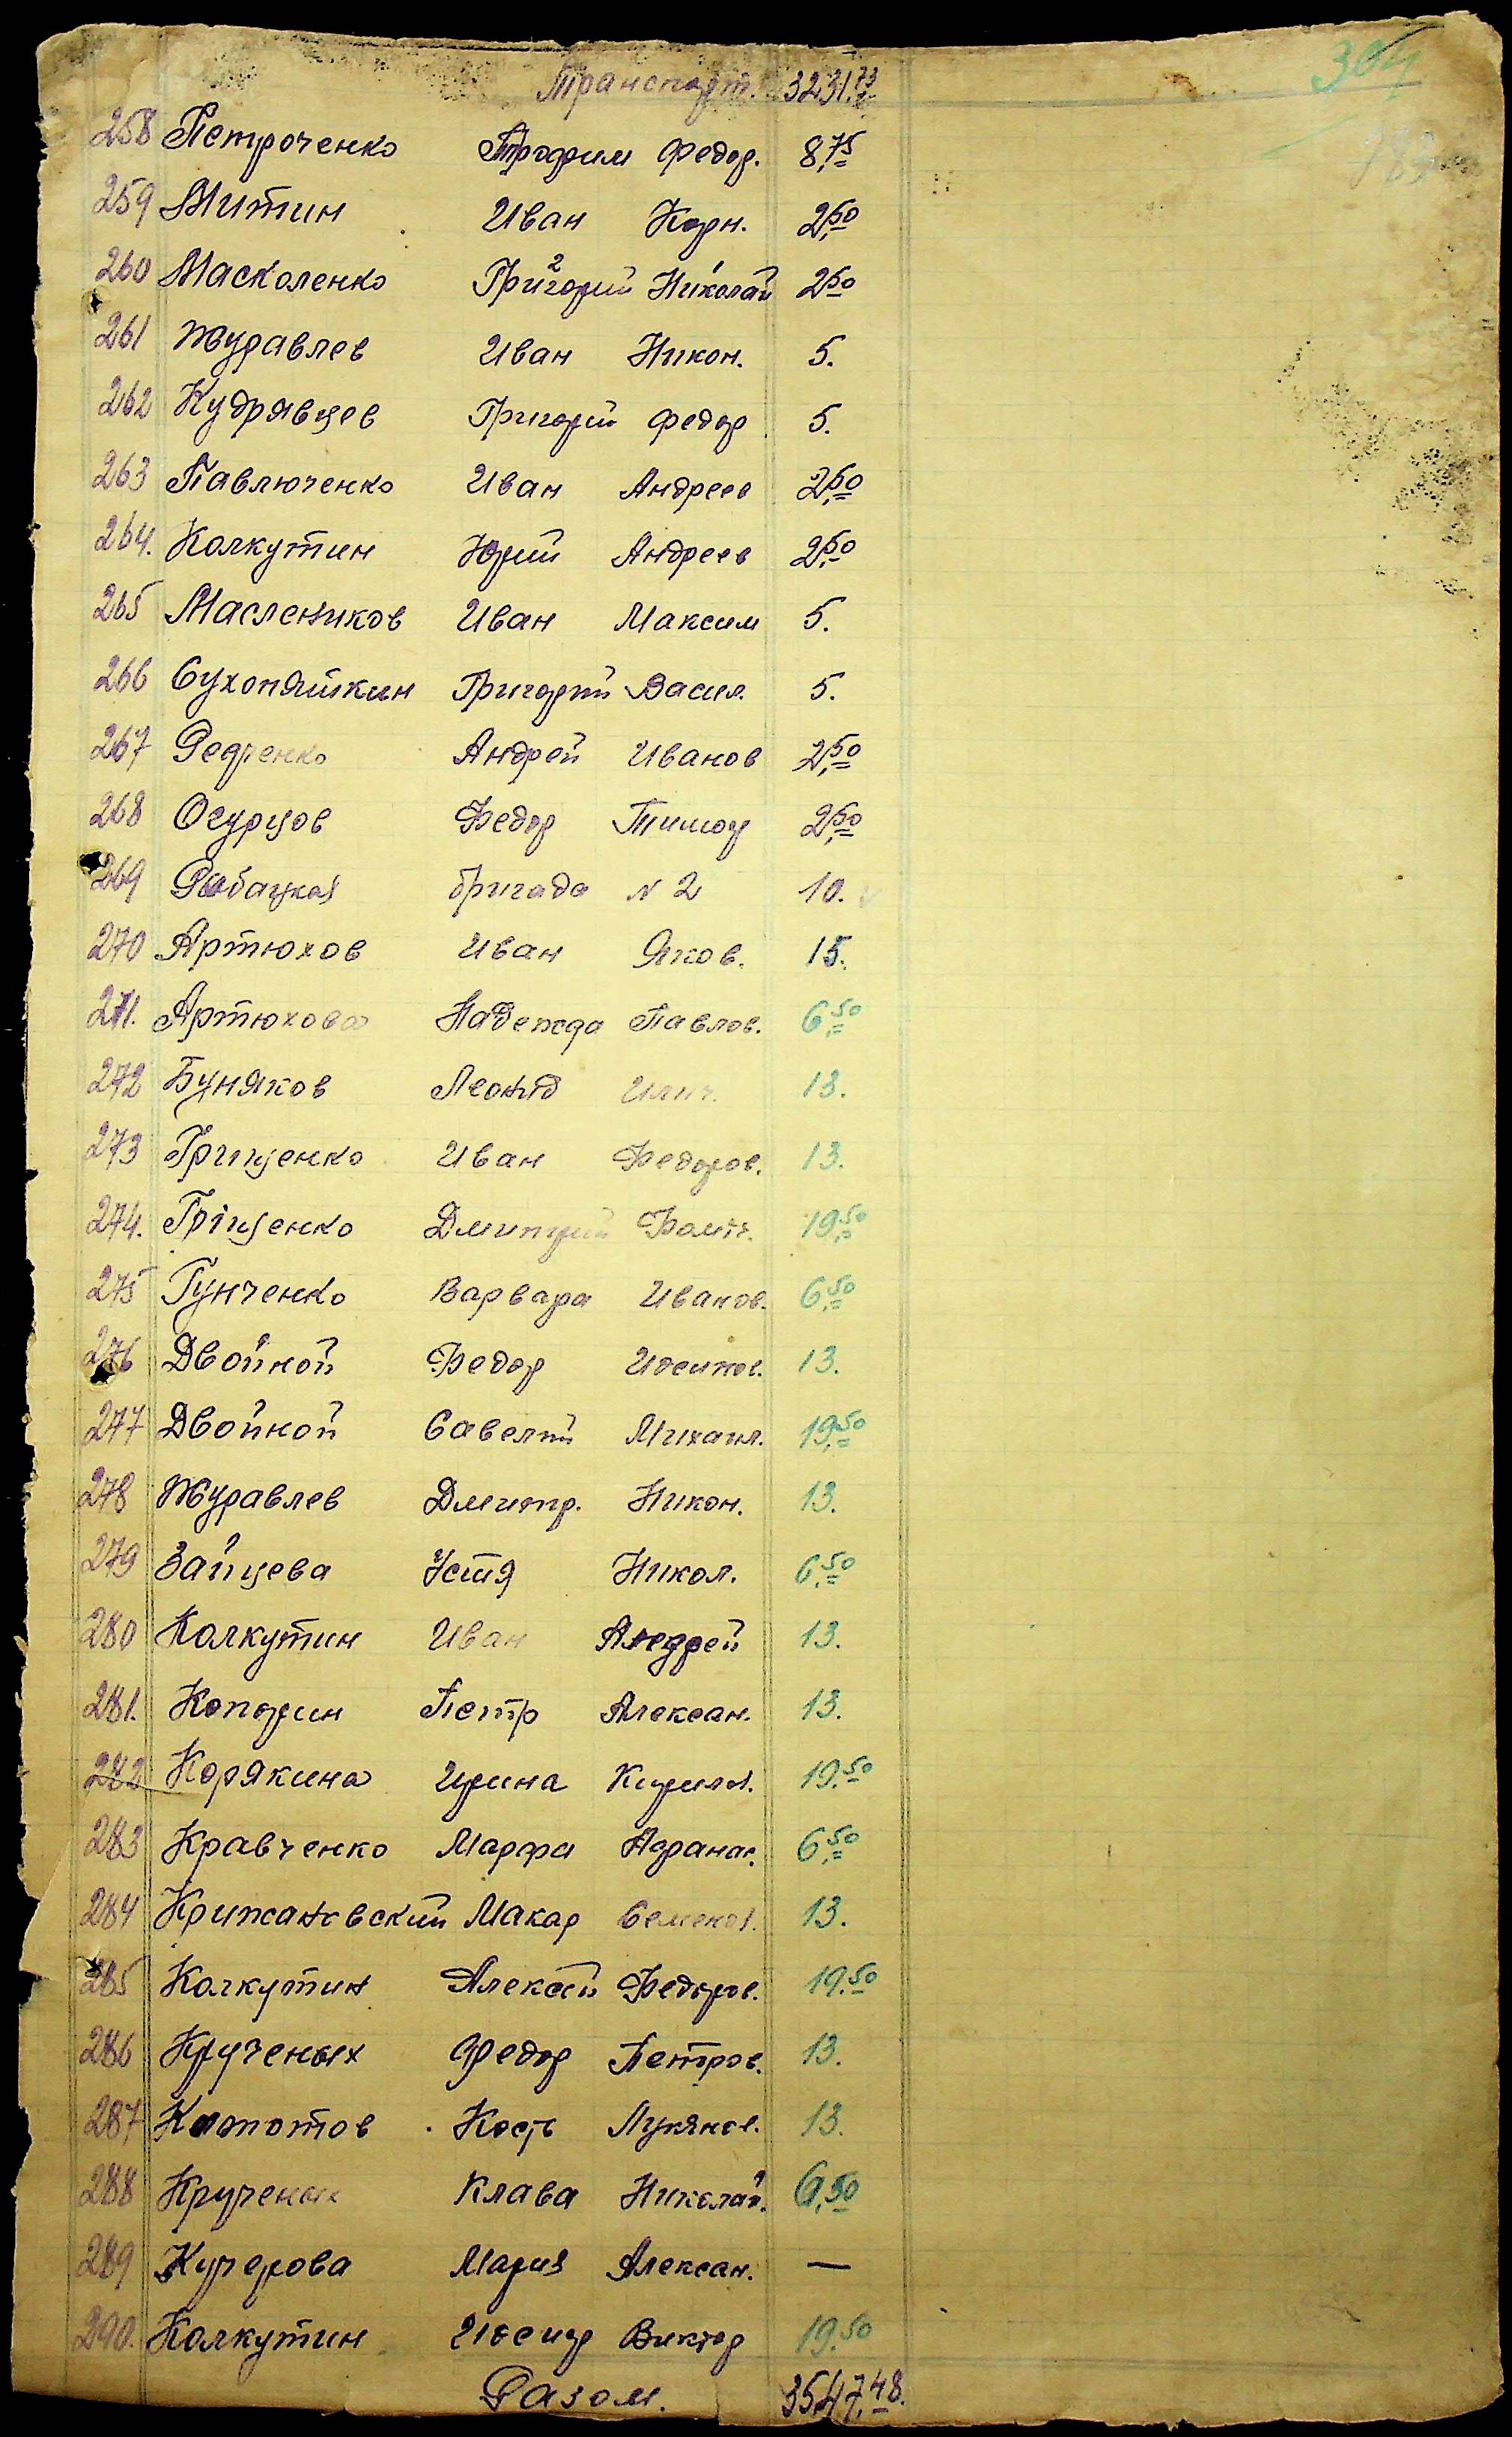 304
Транспорт. 3231.73
258 Петроченко Трофим Федор. 8,75
259 Митин Иван Корн. 2,50
260 Масколенко Григорий 2 Николай 2,50
261 Журавлев Иван Никон. 5.
262 Кудрявцев Григорий Федор 5.
263 Павлюченко Иван Андреев 2,50
264. Колкутин Юрий Андреев 2,50
265 Маслеников Иван Максим 5.
266 Сухопяткин Григорий Васил. 5.
267 Редченко Андрей Иванов 2,50
268 Огурцов Федор Тимоф 2,50
269 Рабацкая бригада N 2 10.
270 Артюхов Иван Яков. 15.
271. Артюхова Надежда Павлов. 6,50
272 Буняков Леонід Илич. 13.
273 Грищенко Иван Федоров. 13.
274. Гріценко Дмитрий Фомич. 19,50
275 Гунченко Варвара Иванов. 6,50
276 Двойной Федор Иосипов. 13.
277 Двойной Савелий Михаил. 19,50
278 Журавлев Дмитр. Никон. 13.
279 Зайцева Устя Никол. 6,50
280 Колкутин Иван Андрей 13.
281. Копорин Петр Алексан. 13.
282 Корякина Ирина Кирилов. 19.50
283 Кравченко Марфа Афанас. 6,50
284 Крижановский Макар Семенов. 13.
285 Колкутин Алексей Федоров. 19.50
286 Крученых Федор Петров. 13.
287 Колотов Кость Лукянов. 13.
288 Крученых Клава Николай. 6,50
289 Кучерова Мария Алексан. —
290. Колкутин Иосиф Виктор 19.50
Разом. 3547,48.